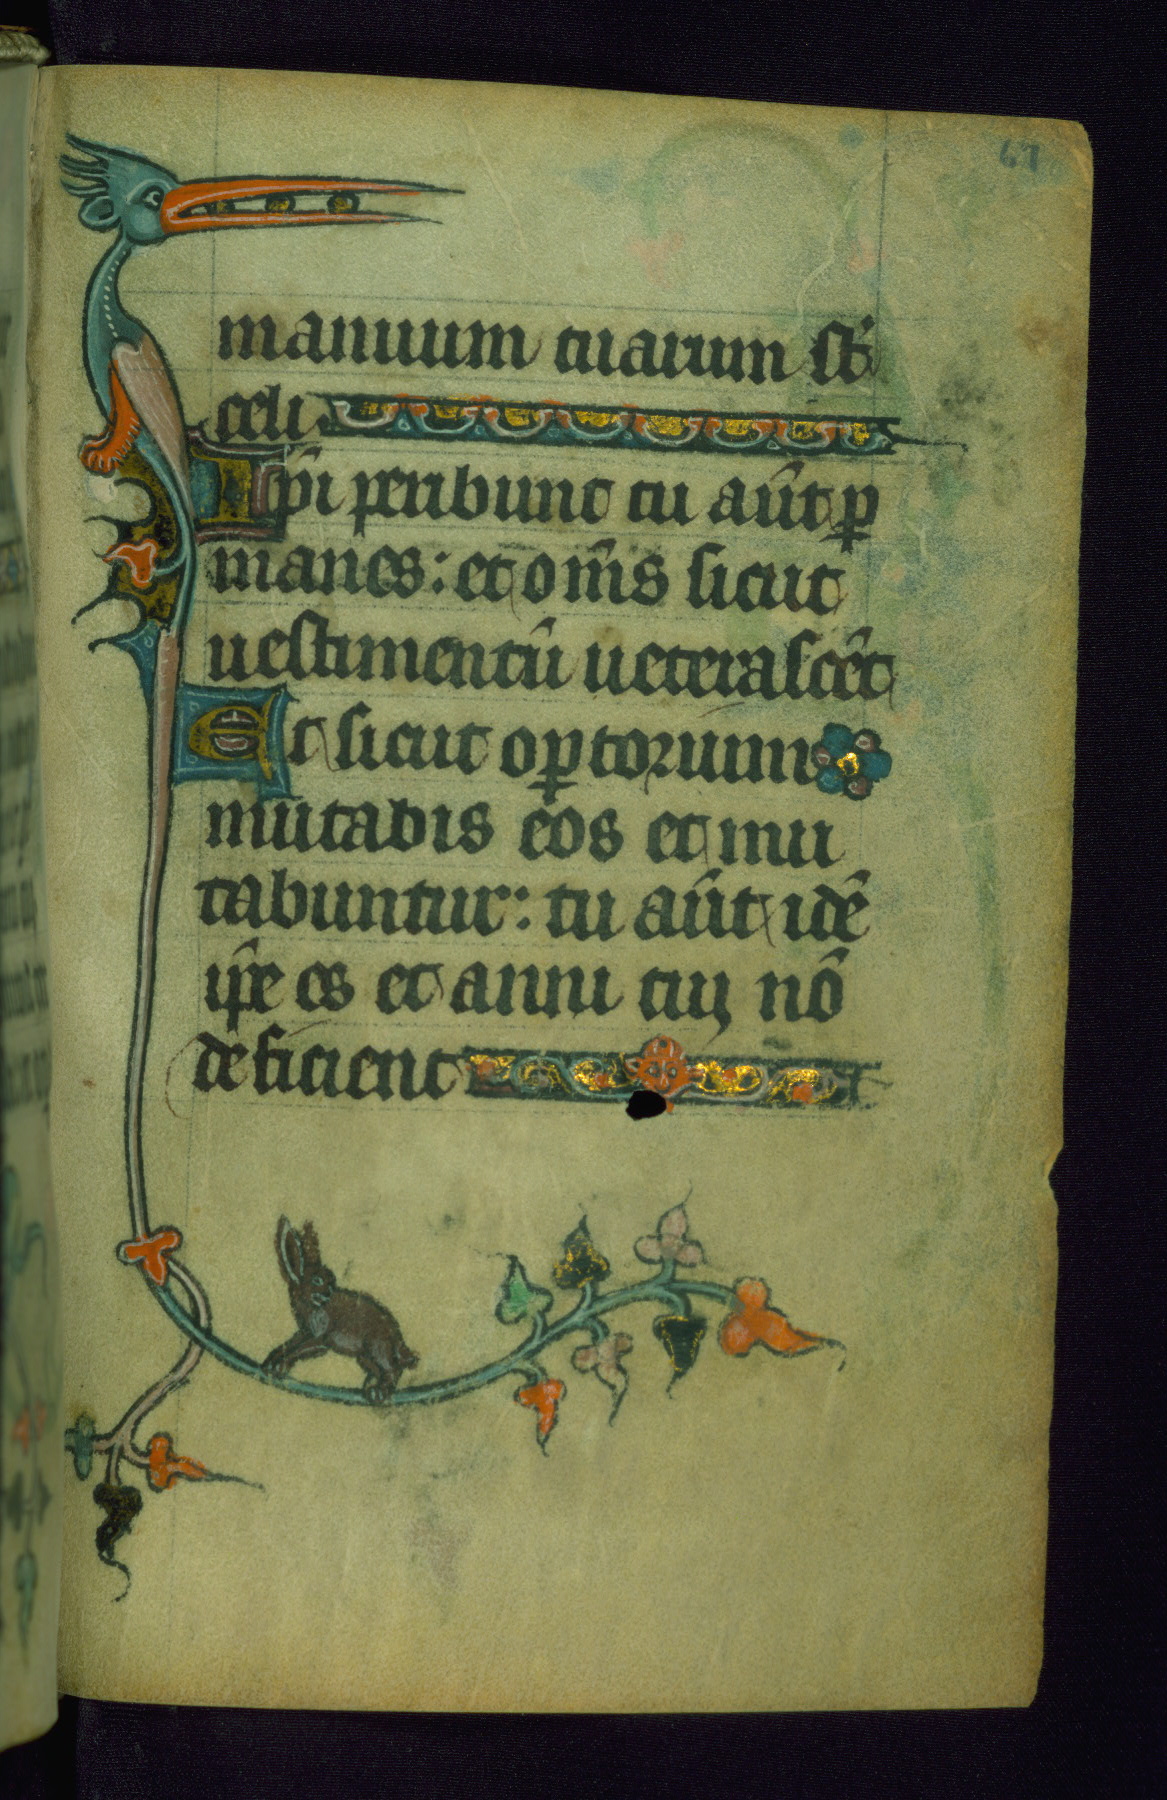 67
manuum tuarum st̄
celi
Ip̄i peribunt tu aūt ꝑ
manes: et om̄s sicut
uestimentū ueterascēt
Et sicut oꝑtorium
mutabis eos et mu
tabuntur: tu aūt idē
ip̄e es et anni tui nō
deficient